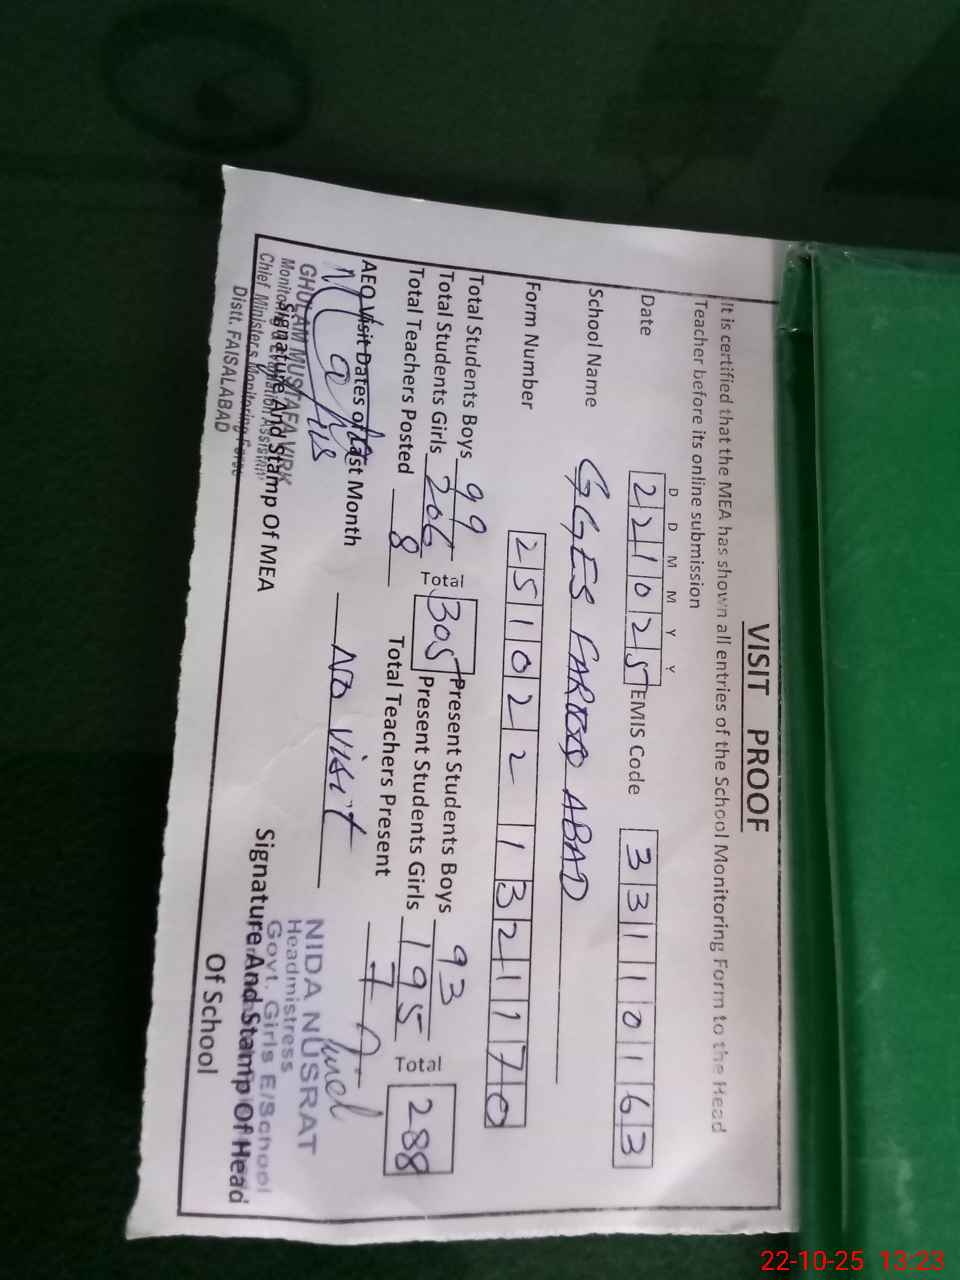 VISIT PROOF
It is certified that the MEA has shown all entries of the School Monitoring Form to the Head
Teacher before its online submission
D D M M Y Y
Date 221025 EMIS Code 33110163
School Name GGES FAREED ABAD
Form Number 2510221321170
Total Students Boys 99 Present Students Boys 93
Total Students Girls 206 Total 305 Present Students Girls 195 Total 288
Total Teachers Posted 8 Total Teachers Present 7
AEO Visit Dates of Last Month No visit
GHULAM MUSTAFA VIRK
Monitoring & Evaluation Assistant
Signature And Stamp Of MEA
Chief Minister's Monitoring Force
Distt. FAISALABAD
NIDA NUSRAT
Headmistress
Govt. Girls E/School
Signature And Stamp Of Head
Of School
22-10-25 13:23